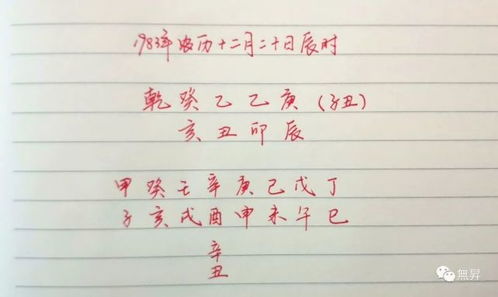 1983年农历十二月二十日辰时
乾癸乙乙庚(子丑)
亥丑卯辰
甲癸壬辛庚己戊丁
子亥戌酉申未午巳
辛
丑
無昇